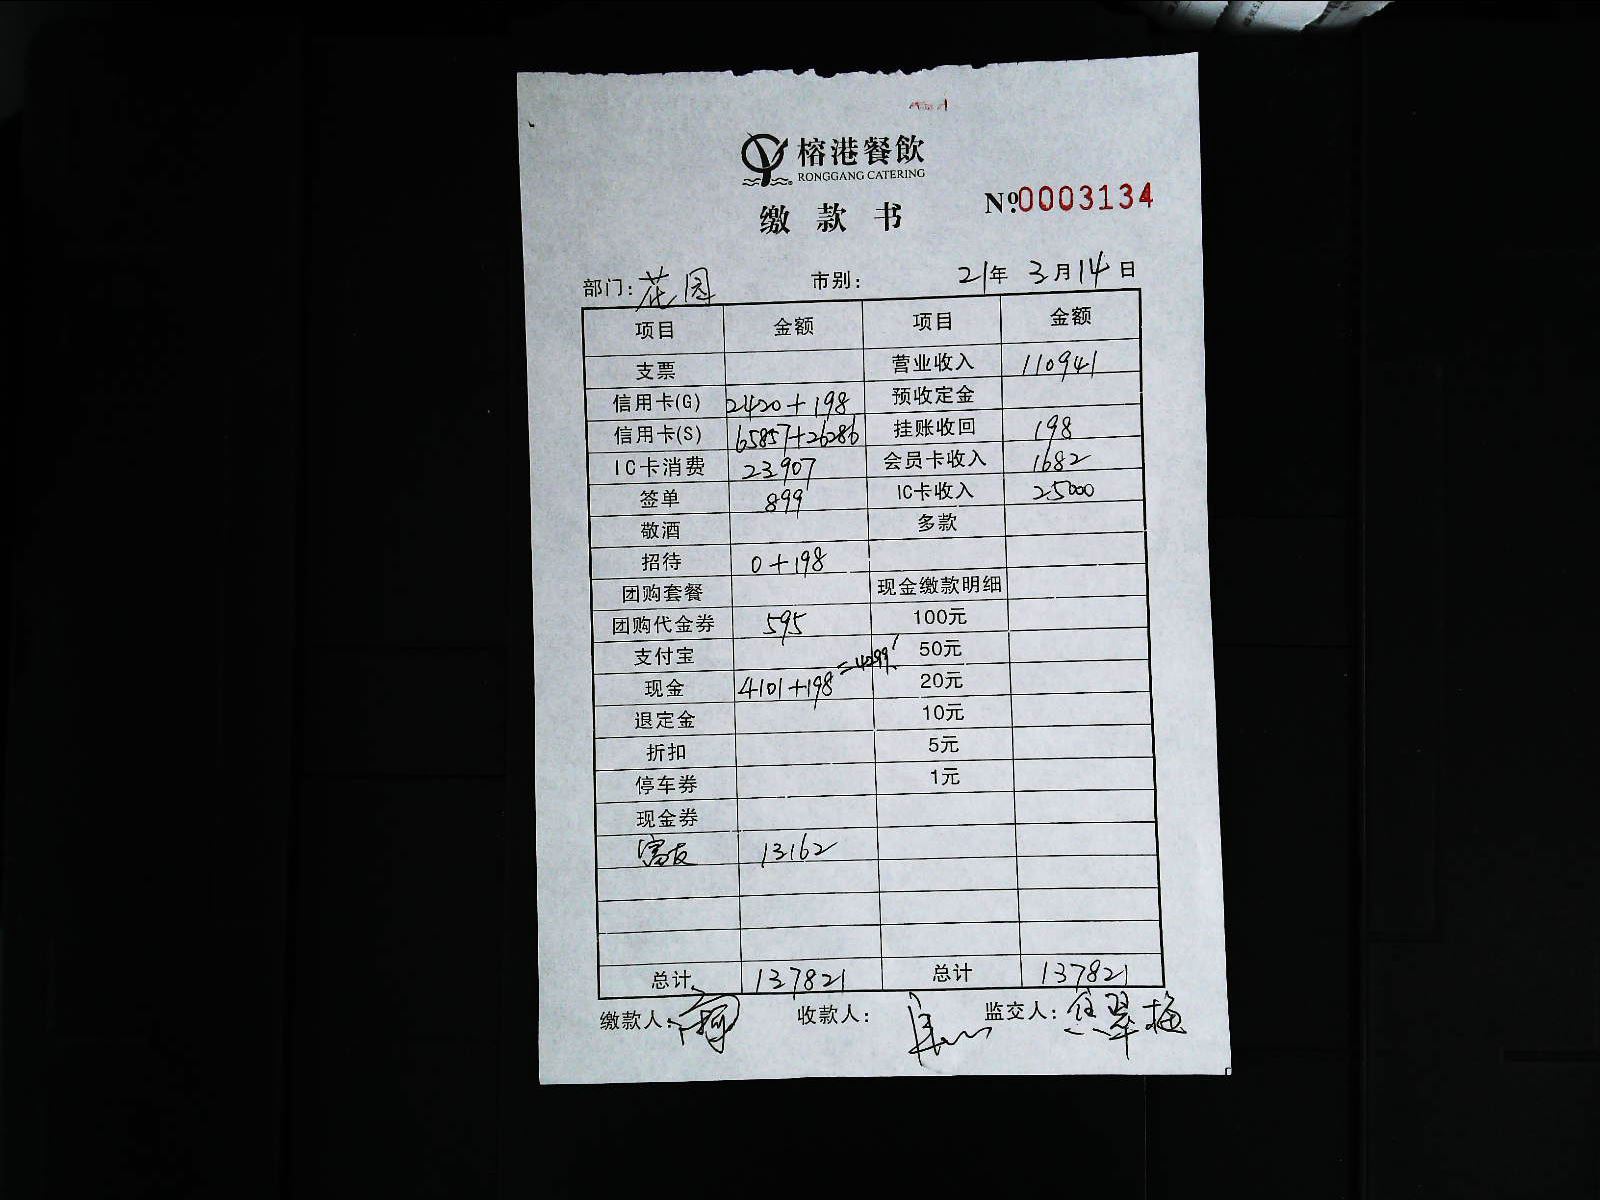 榕港餐飲
RONGGANG CATERING
缴款书
№0003134
部门:花园 市别: 21年 3月14日
项目 金额 项目 金额
支票 营业收入 110941
信用卡(G) 2420+198 预收定金
信用卡(S) 65857+26286 挂账收回 198
IC卡消费 23907 会员卡收入 1682
签单 899 IC卡收入 25000
敬酒 多款
招待 0+198
团购套餐 现金缴款明细
团购代金券 595 100元
支付宝 50元
现金 4101+198 =4299 20元
退定金 10元
折扣 5元
停车券 1元
现金券
富友 13162
总计 137821 总计 137821
缴款人: 收款人: 监交人: